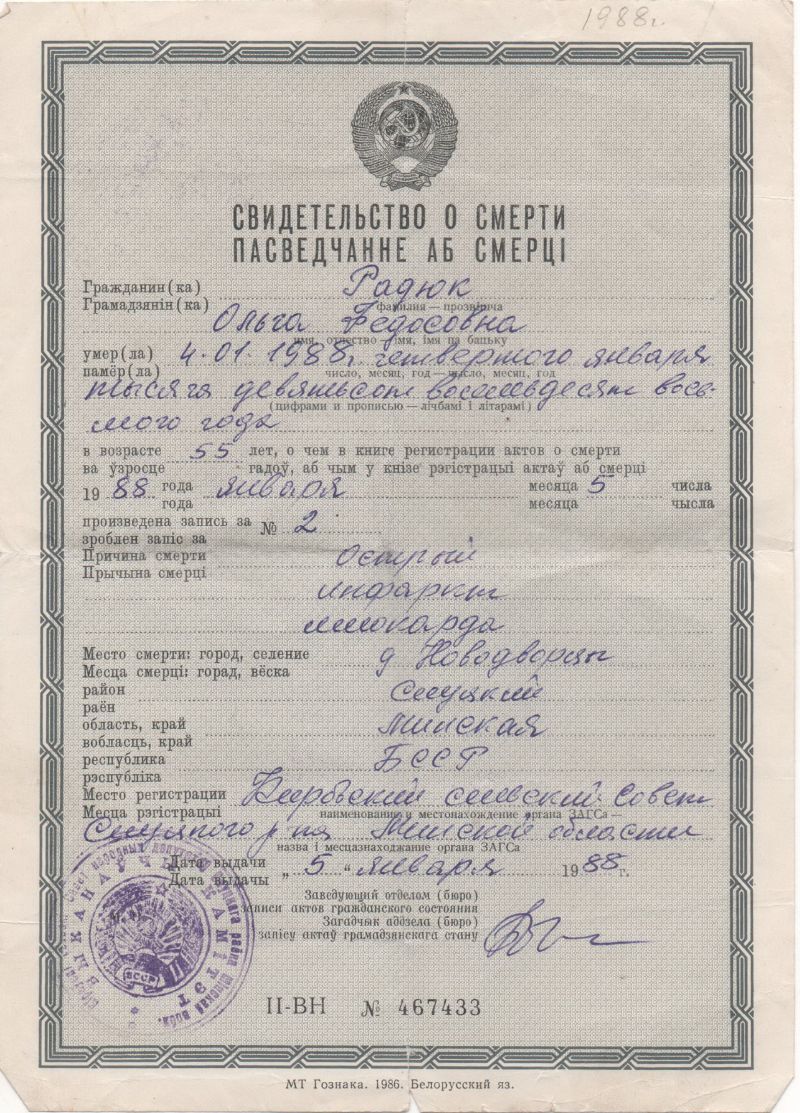 1988г.
СВИДЕТЕЛЬСТВО О СМЕРТИ
ПАСВЕДЧАННЕ АБ СМЕРЦІ
Гражданин(ка) Радюк
Грамадзянін(ка) фамилия — прозвішча
Ольга Федосовна
имя, отчество — імя, імя па бацьку
умер(ла) 4.01.1988г. четвертого января
памёр(ла) число, месяц, год — чысло, месяц, год
тысяча девятьсот восемьдесят вось-
(цифрами и прописью — лічбамі і літарамі)
мого года
в возрасте 55 лет, о чем в книге регистрации актов о смерти
ва ўзросце гадоў, аб чым у кнізе рэгістрацыі актаў аб смерці
19 88 года января месяца 5 числа
года месяца чысла
произведена запись за № 2
зроблен запіс за
Причина смерти Острый
Прычына смерці
инфаркт
миокарда
Место смерти: город, селение д Новодворцы
Месца смерці: горад, вёска
район Слуцкий
раён
область, край Минская
вобласць, край
республика БССР
рэспубліка
Место регистрации сельский Совет
Месца рэгістрацыі наименование и местонахождение органа ЗАГСа —
Слуцкого р-на Минской области
назва і месцазнаходжанне органа ЗАГСа
Дата выдачи „ 5 “ января 19 88 г.
Дата выдачы
Заведующий отделом (бюро)
записи актов гражданского состояния
Загадчык аддзела (бюро)
запісу актаў грамадзянскага стану
ВЫКАНАЎЧЫ КАМІТЭТ
БССР
II-ВН № 467433
МТ Гознака. 1986. Белорусский яз.